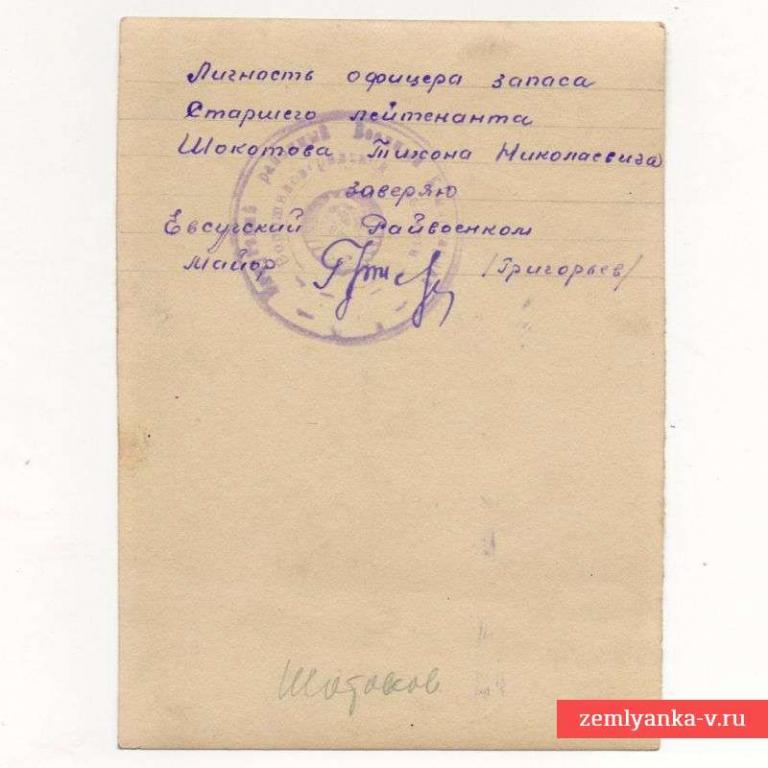 Личность офицера запаса
Старшего лейтенанта
Шокотова Тихона Николаевича
заверяю
Евсугский Райвоенком
Майор /Григорьев/
районный Военный
zemlyanka-v.ru